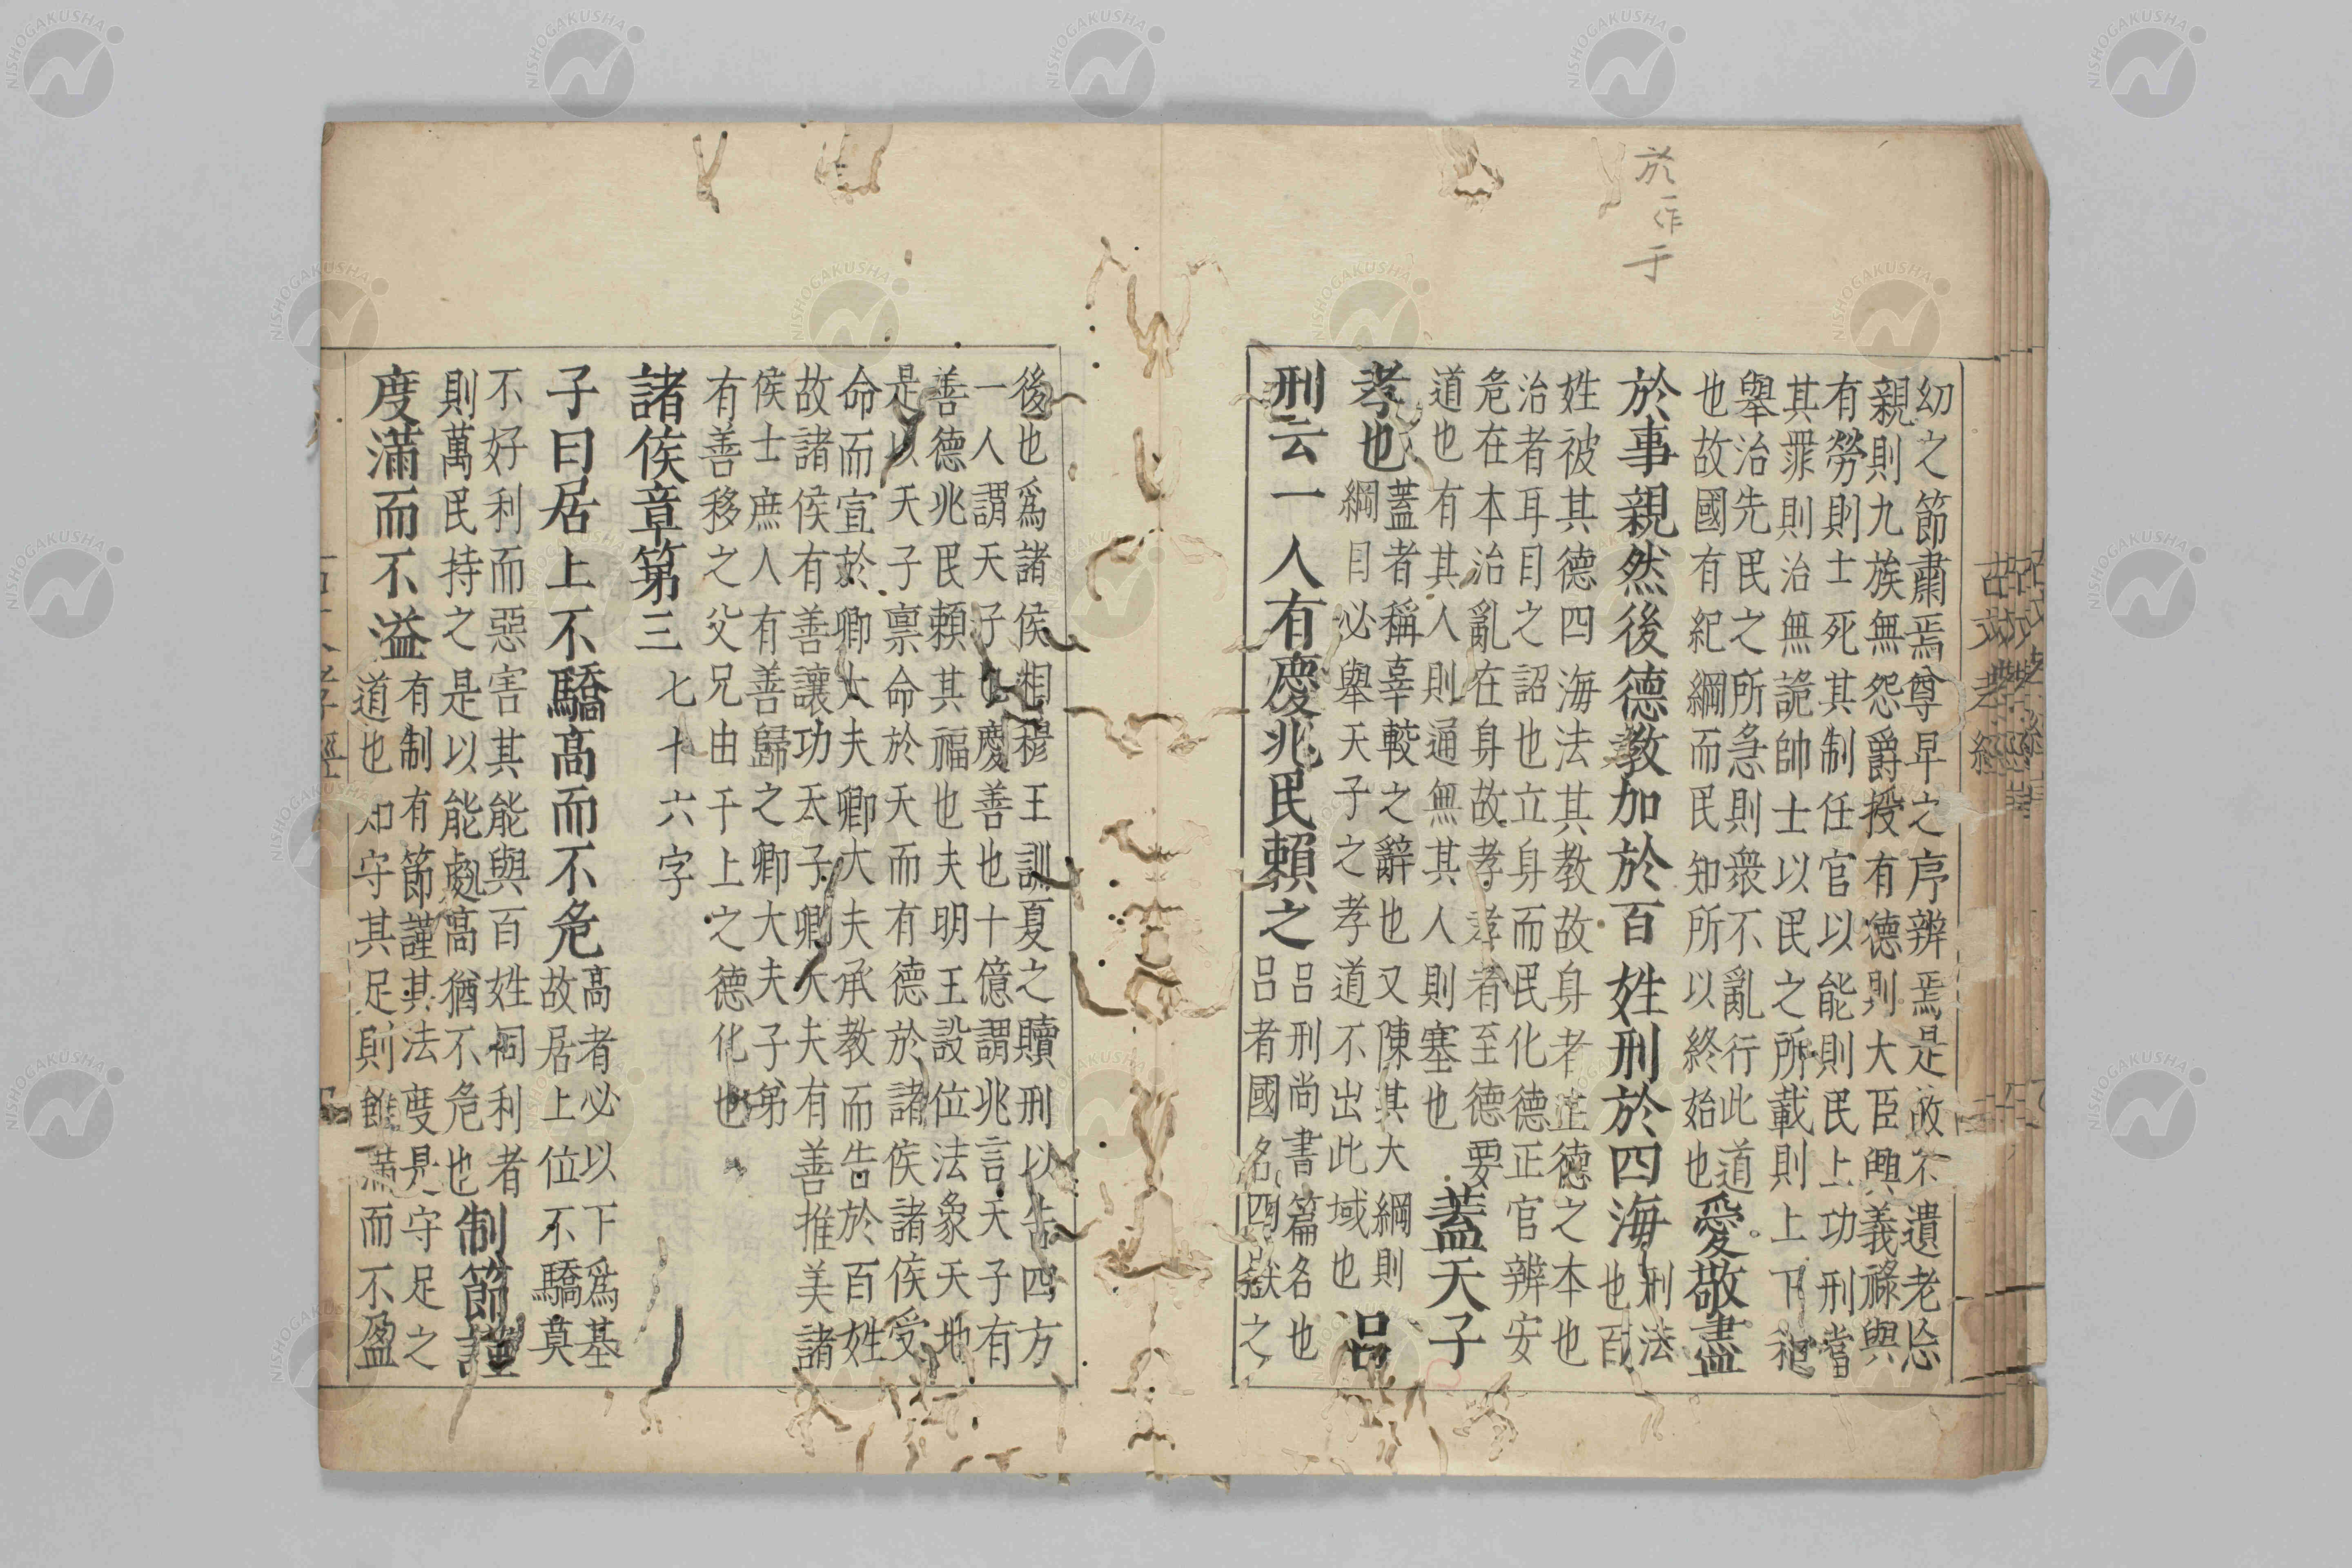 於一作于
幼之節肅焉尊卑之序辨焉是故不遺老忘
親則九族無怨爵授有德則大臣興義祿與
有勞則士死其制任官以能則民上功刑當
其罪則治無詭帥士以民之所載則上下和
舉治先民之所急則衆不亂行此道
也故國有紀綱而民知所以終始也
愛敬盡
於事親然後德教加於百姓刑於四海
刑法
也百
姓被其德四海法其教故身者正德之本也
治者耳目之詔也立身而民化德正官辨安
危在本治亂在身故孝孝者至德要
道也有其人則通無其人則塞也
蓋天子
孝也
蓋者稱辜較之辭也又陳其大綱則
綱目必舉天子之孝道不出此域也
呂
刑云一人有慶兆民賴之
呂刑尚書篇名也
呂者國名四嶽之
後也爲諸侯相穆王訓夏之贖刑以告四方
一人謂天子也慶善也十億謂兆言天子有
善德兆民賴其福也夫明王設位法象天地
是以天子稟命於天而有德於諸侯諸侯受
命而宣於卿大夫卿大夫承教而告於百姓
故諸侯有善讓功天子卿大夫有善推美諸
侯士庶人有善歸之卿大夫子弟
有善移之父兄由于上之德化也
諸侯章第三 七十六字
子曰居上不驕高而不危
高者必以下爲基
故居上位不驕莫
不好利而惡害其能與百姓同利者
則萬民持之是以能處高猶不危也
制節謹
度滿而不溢
有制有節謹其法度是守足之
道也知守其足則雖滿而不盈
古文孝經
NISHOGAKUSHA